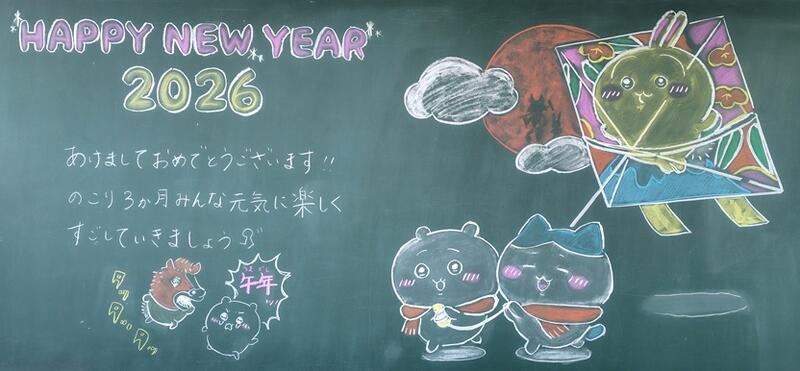 HAPPY NEW YEAR
2026
あけましておめでとうございます!!
のこり3か月みんな元気に楽しく
すごしていきましょう
うまどし
午年
ダッ
ダッ
ダッ